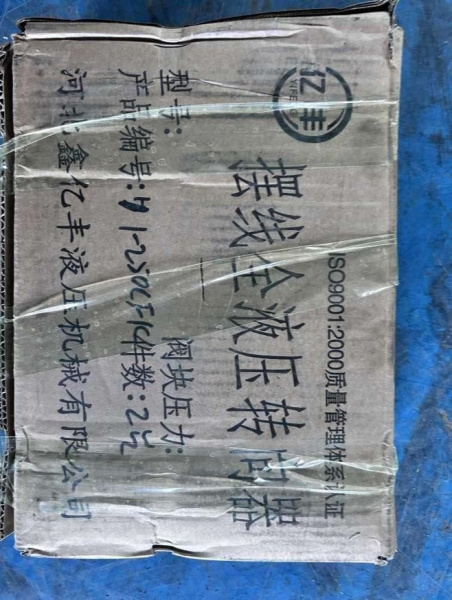 亿丰
ISO9001:2000质量管理体系认证
摆线全液压转向器
型号: 阀块压力:
产品编号: 件数:2
河北鑫亿丰液压机械有限公司